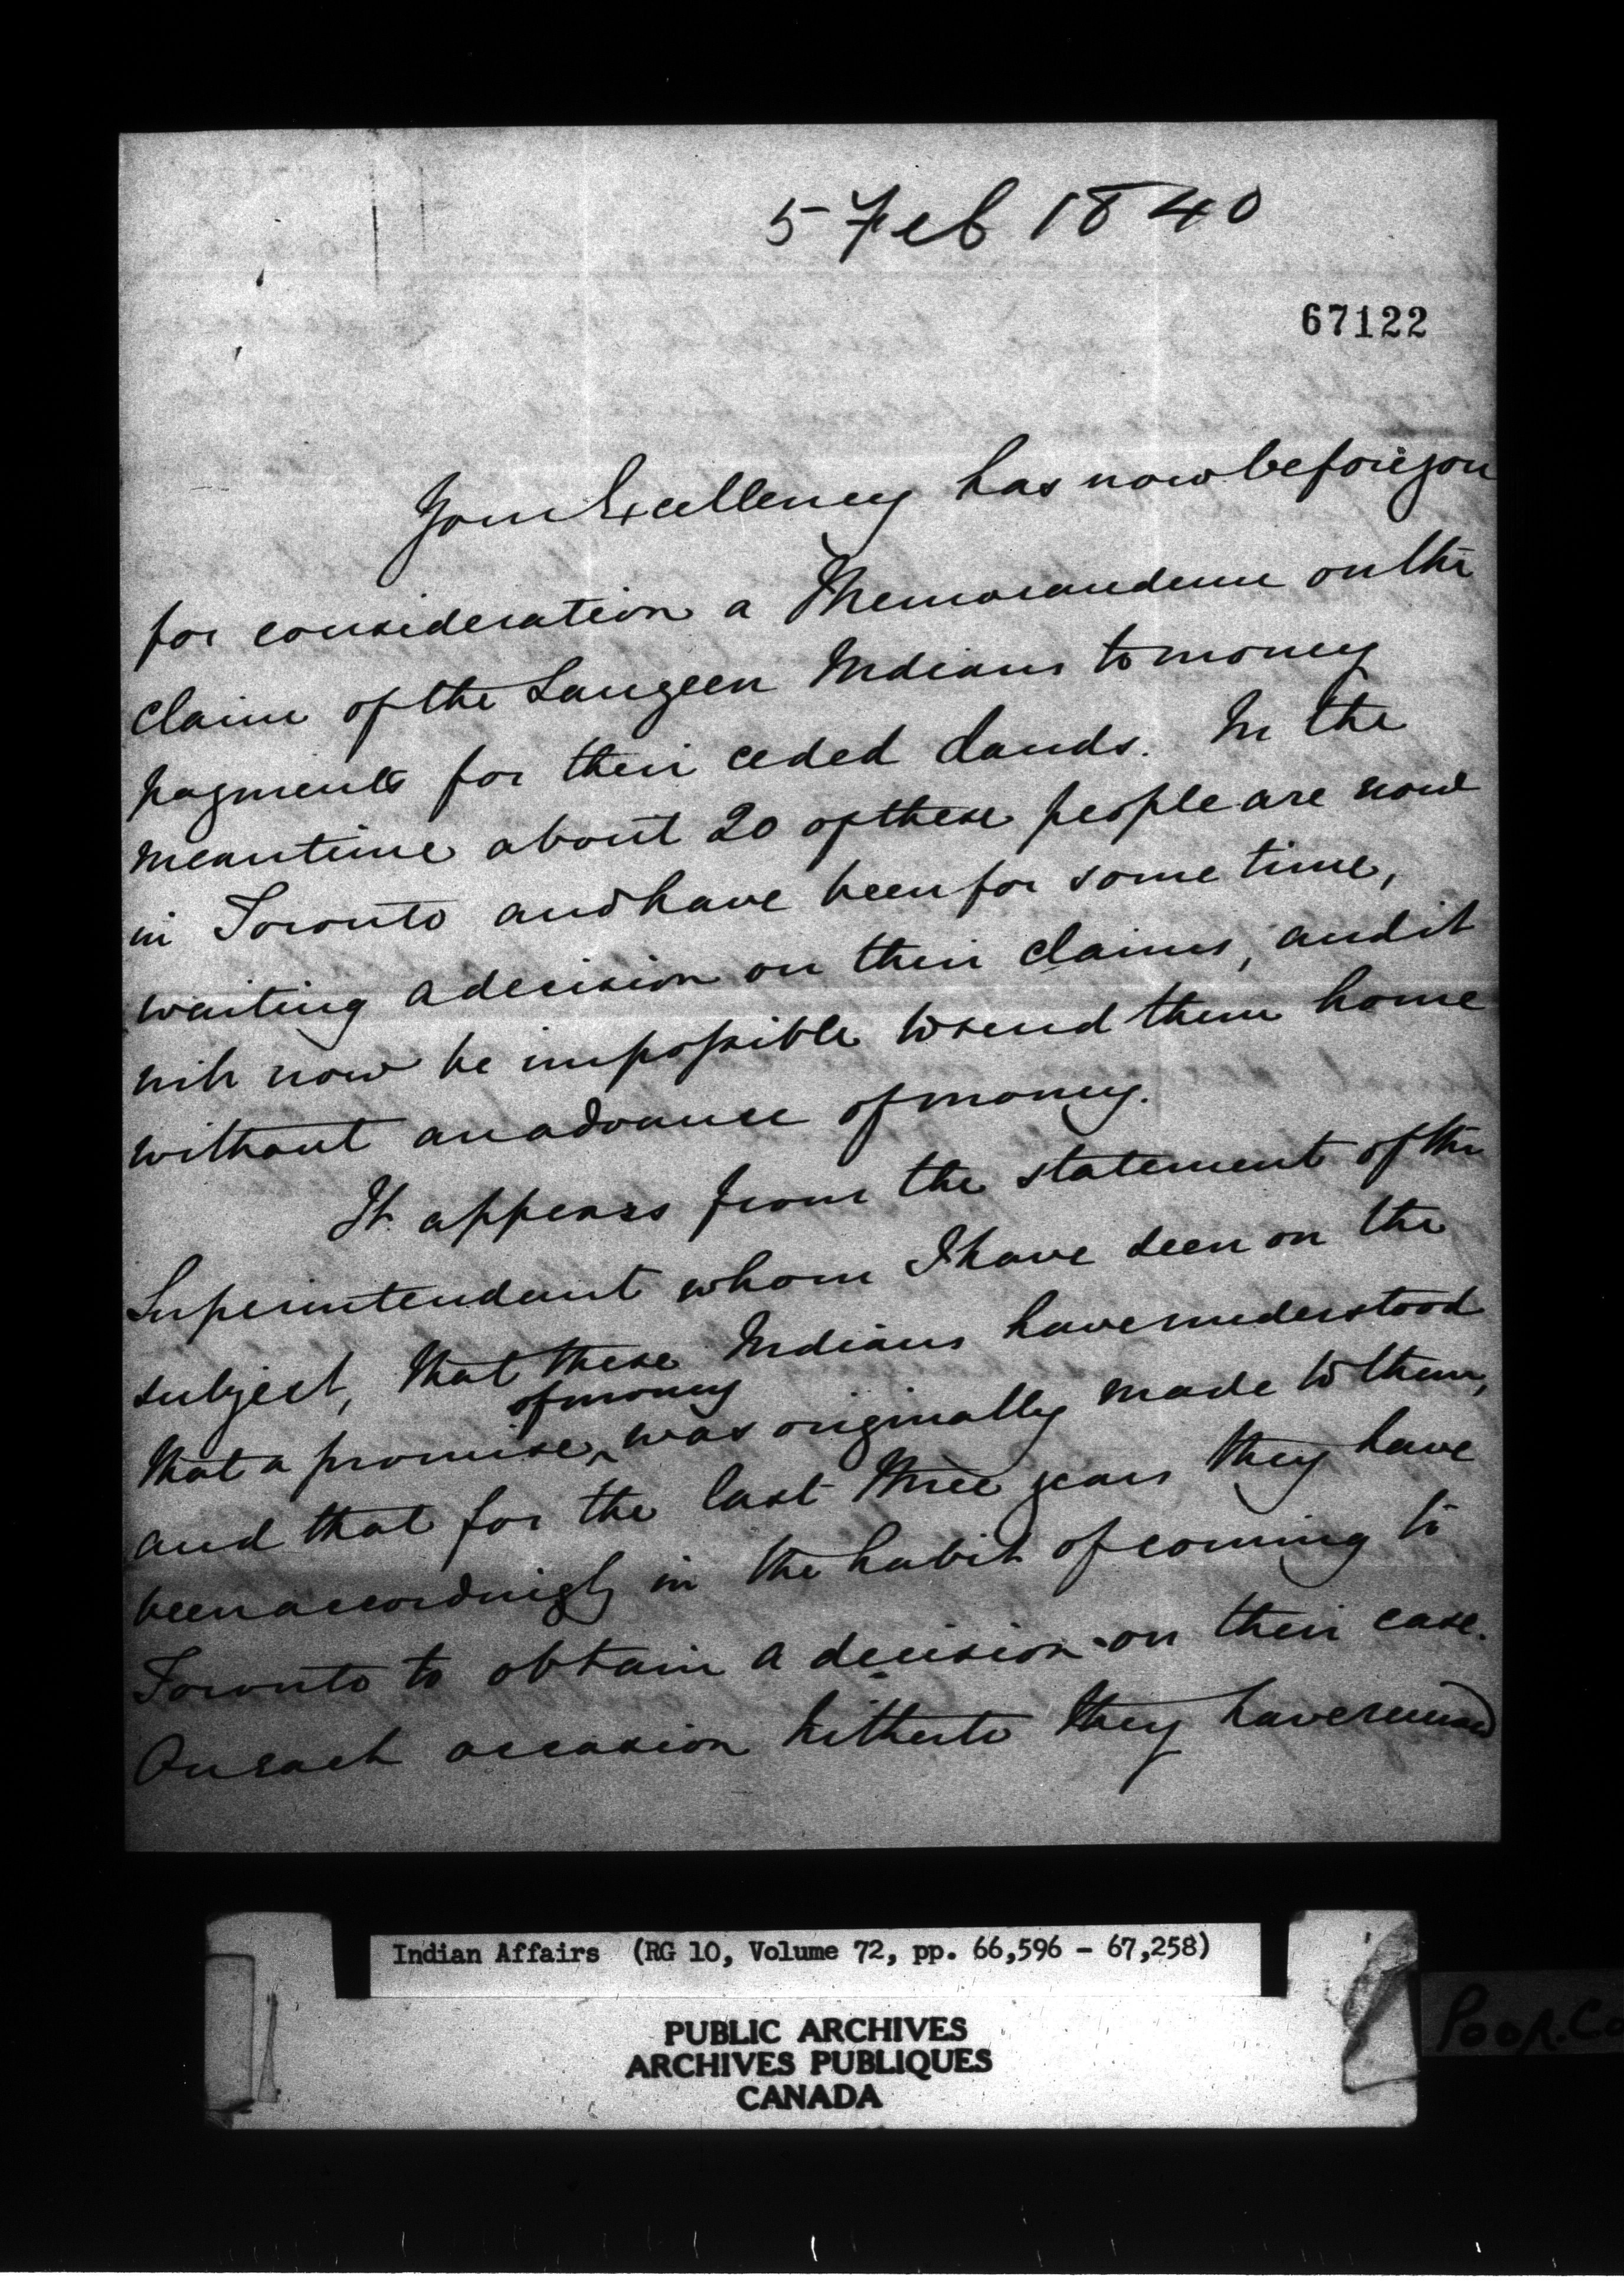 5 Feb 1840
67122
Your Excellency has now before you
for consideration a Memorandum on the
claim of the Saugeen Indians to money
payments for their ceded Lands. In the
meantime about 20 of these people are now
in Toronto and have been for some time,
waiting a decision on their claims, and it
will now be impossible to send them home
without an advance of money.
It appears from the statement of the
Superintendent whom I have seen on the
subject, that these Indians have understood
of money
that a promise ^ was originally made to them,
and that for the last three years they have
been accordingly in the habit of coming to
Toronto to obtain a decision on their case.
On each occasion hitherto they have
Indian Affairs (RG 10, Volume 72, pp. 66,596 - 67,258)
PUBLIC ARCHIVES
ARCHIVES PUBLIQUES
CANADA
Poor. Co